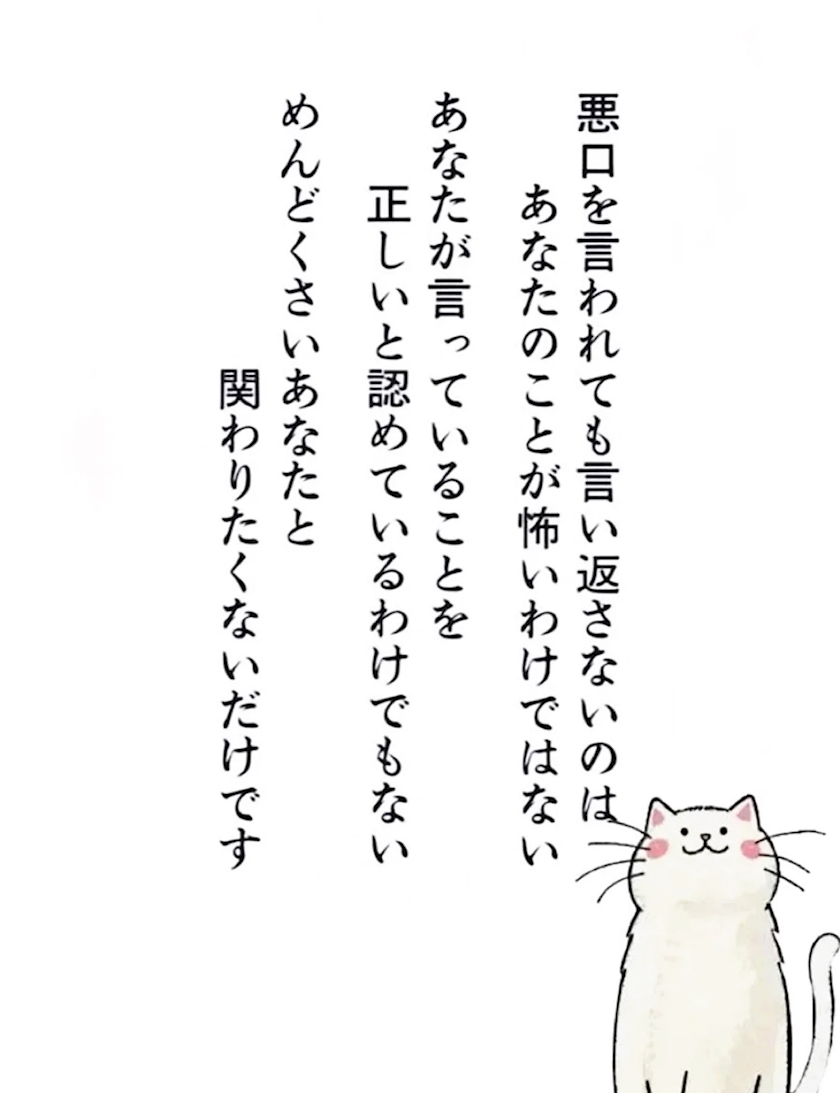 悪口を言われても言い返さないのは
あなたのことが怖いわけではない
あなたが言っていることを
正しいと認めているわけでもない
めんどくさいあなたと
関わりたくないだけです